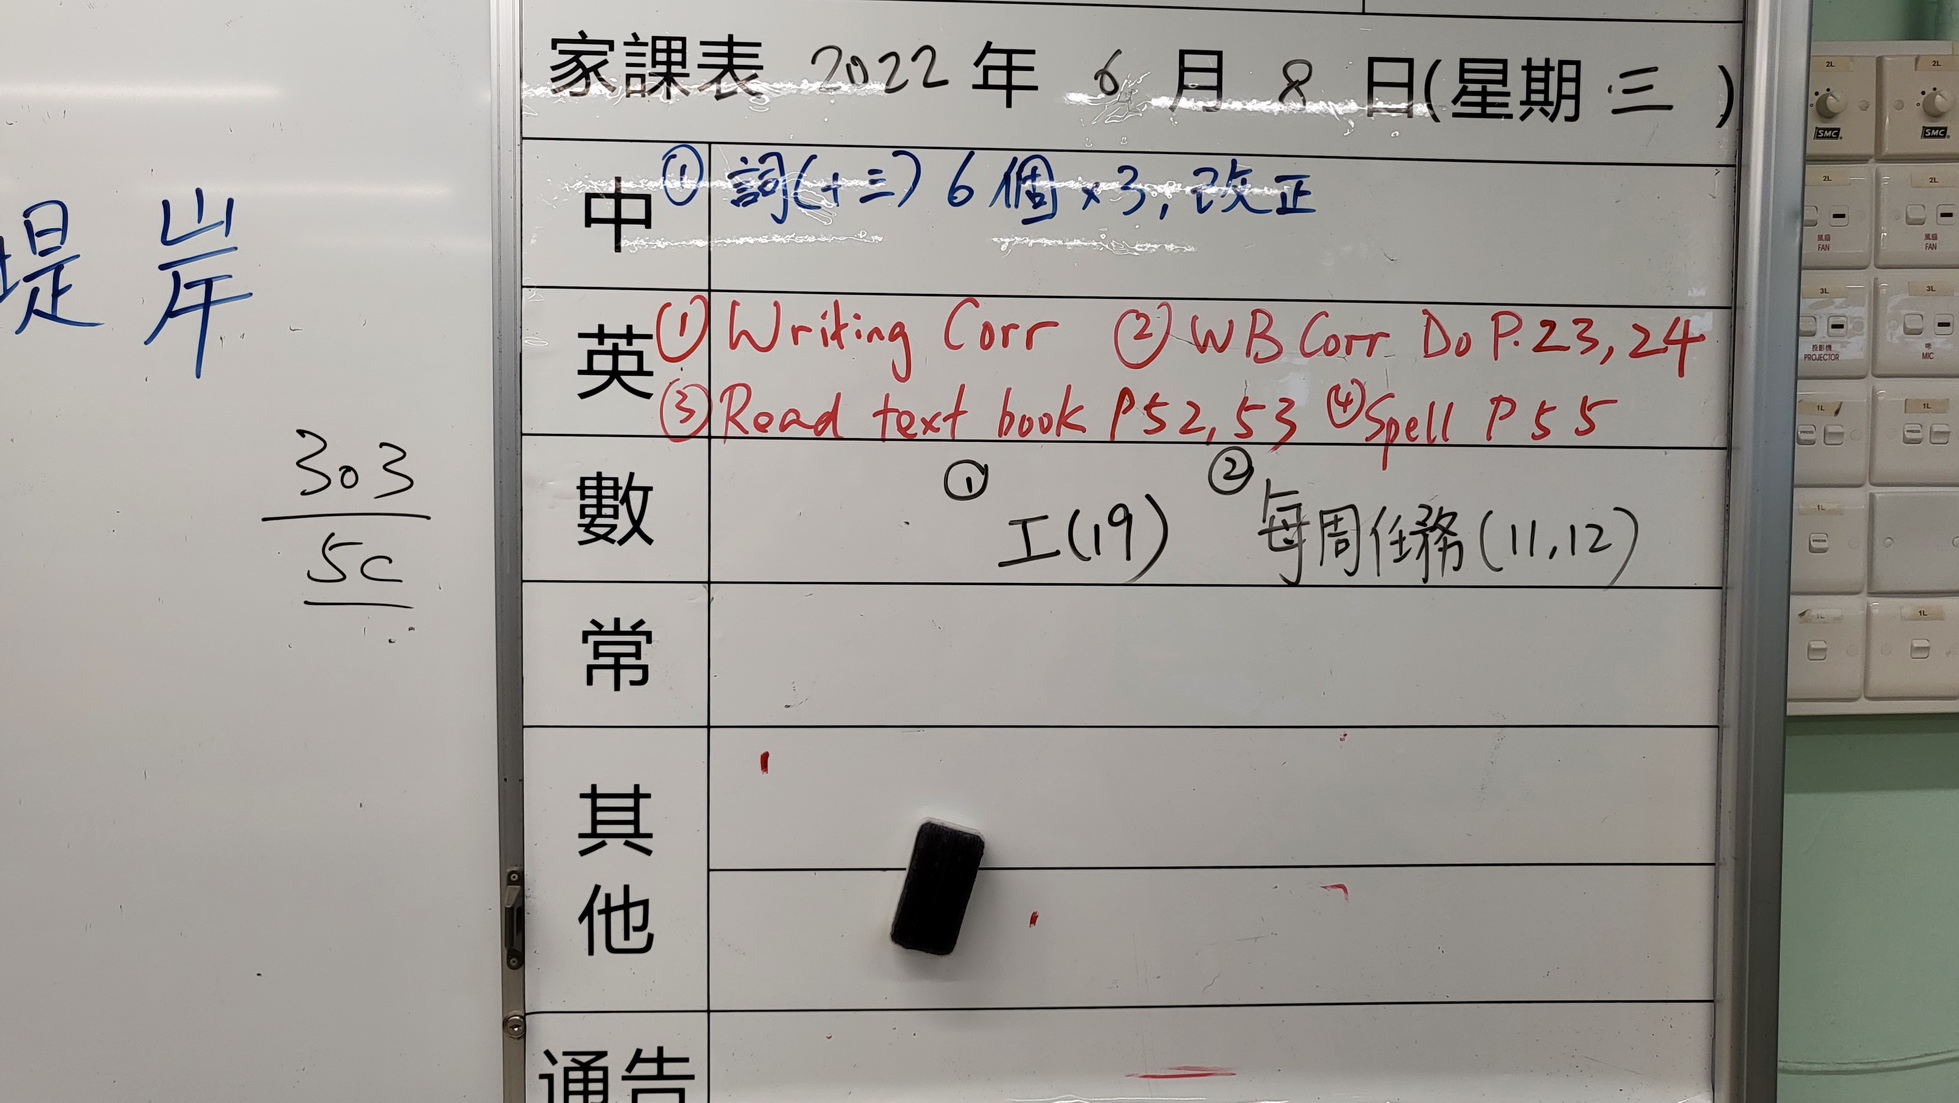 堤岸
303
5C
家課表 2022年 6月 8日(星期三)
中 ① 詞(十三) 6個×3, 改正
英 ① Writing Corr ② WB Corr Do P.23, 24
③ Read text book P52, 53 ④ Spell P55
數 ① 工(19) ② 每周任務(11,12)
常
其他
通告
2L 2L
SMC SMC
2L 2L
風扇 風扇
FAN FAN
3L 3L
投影機 咪
PROJECTOR MIC
1L 1L
1L
1L